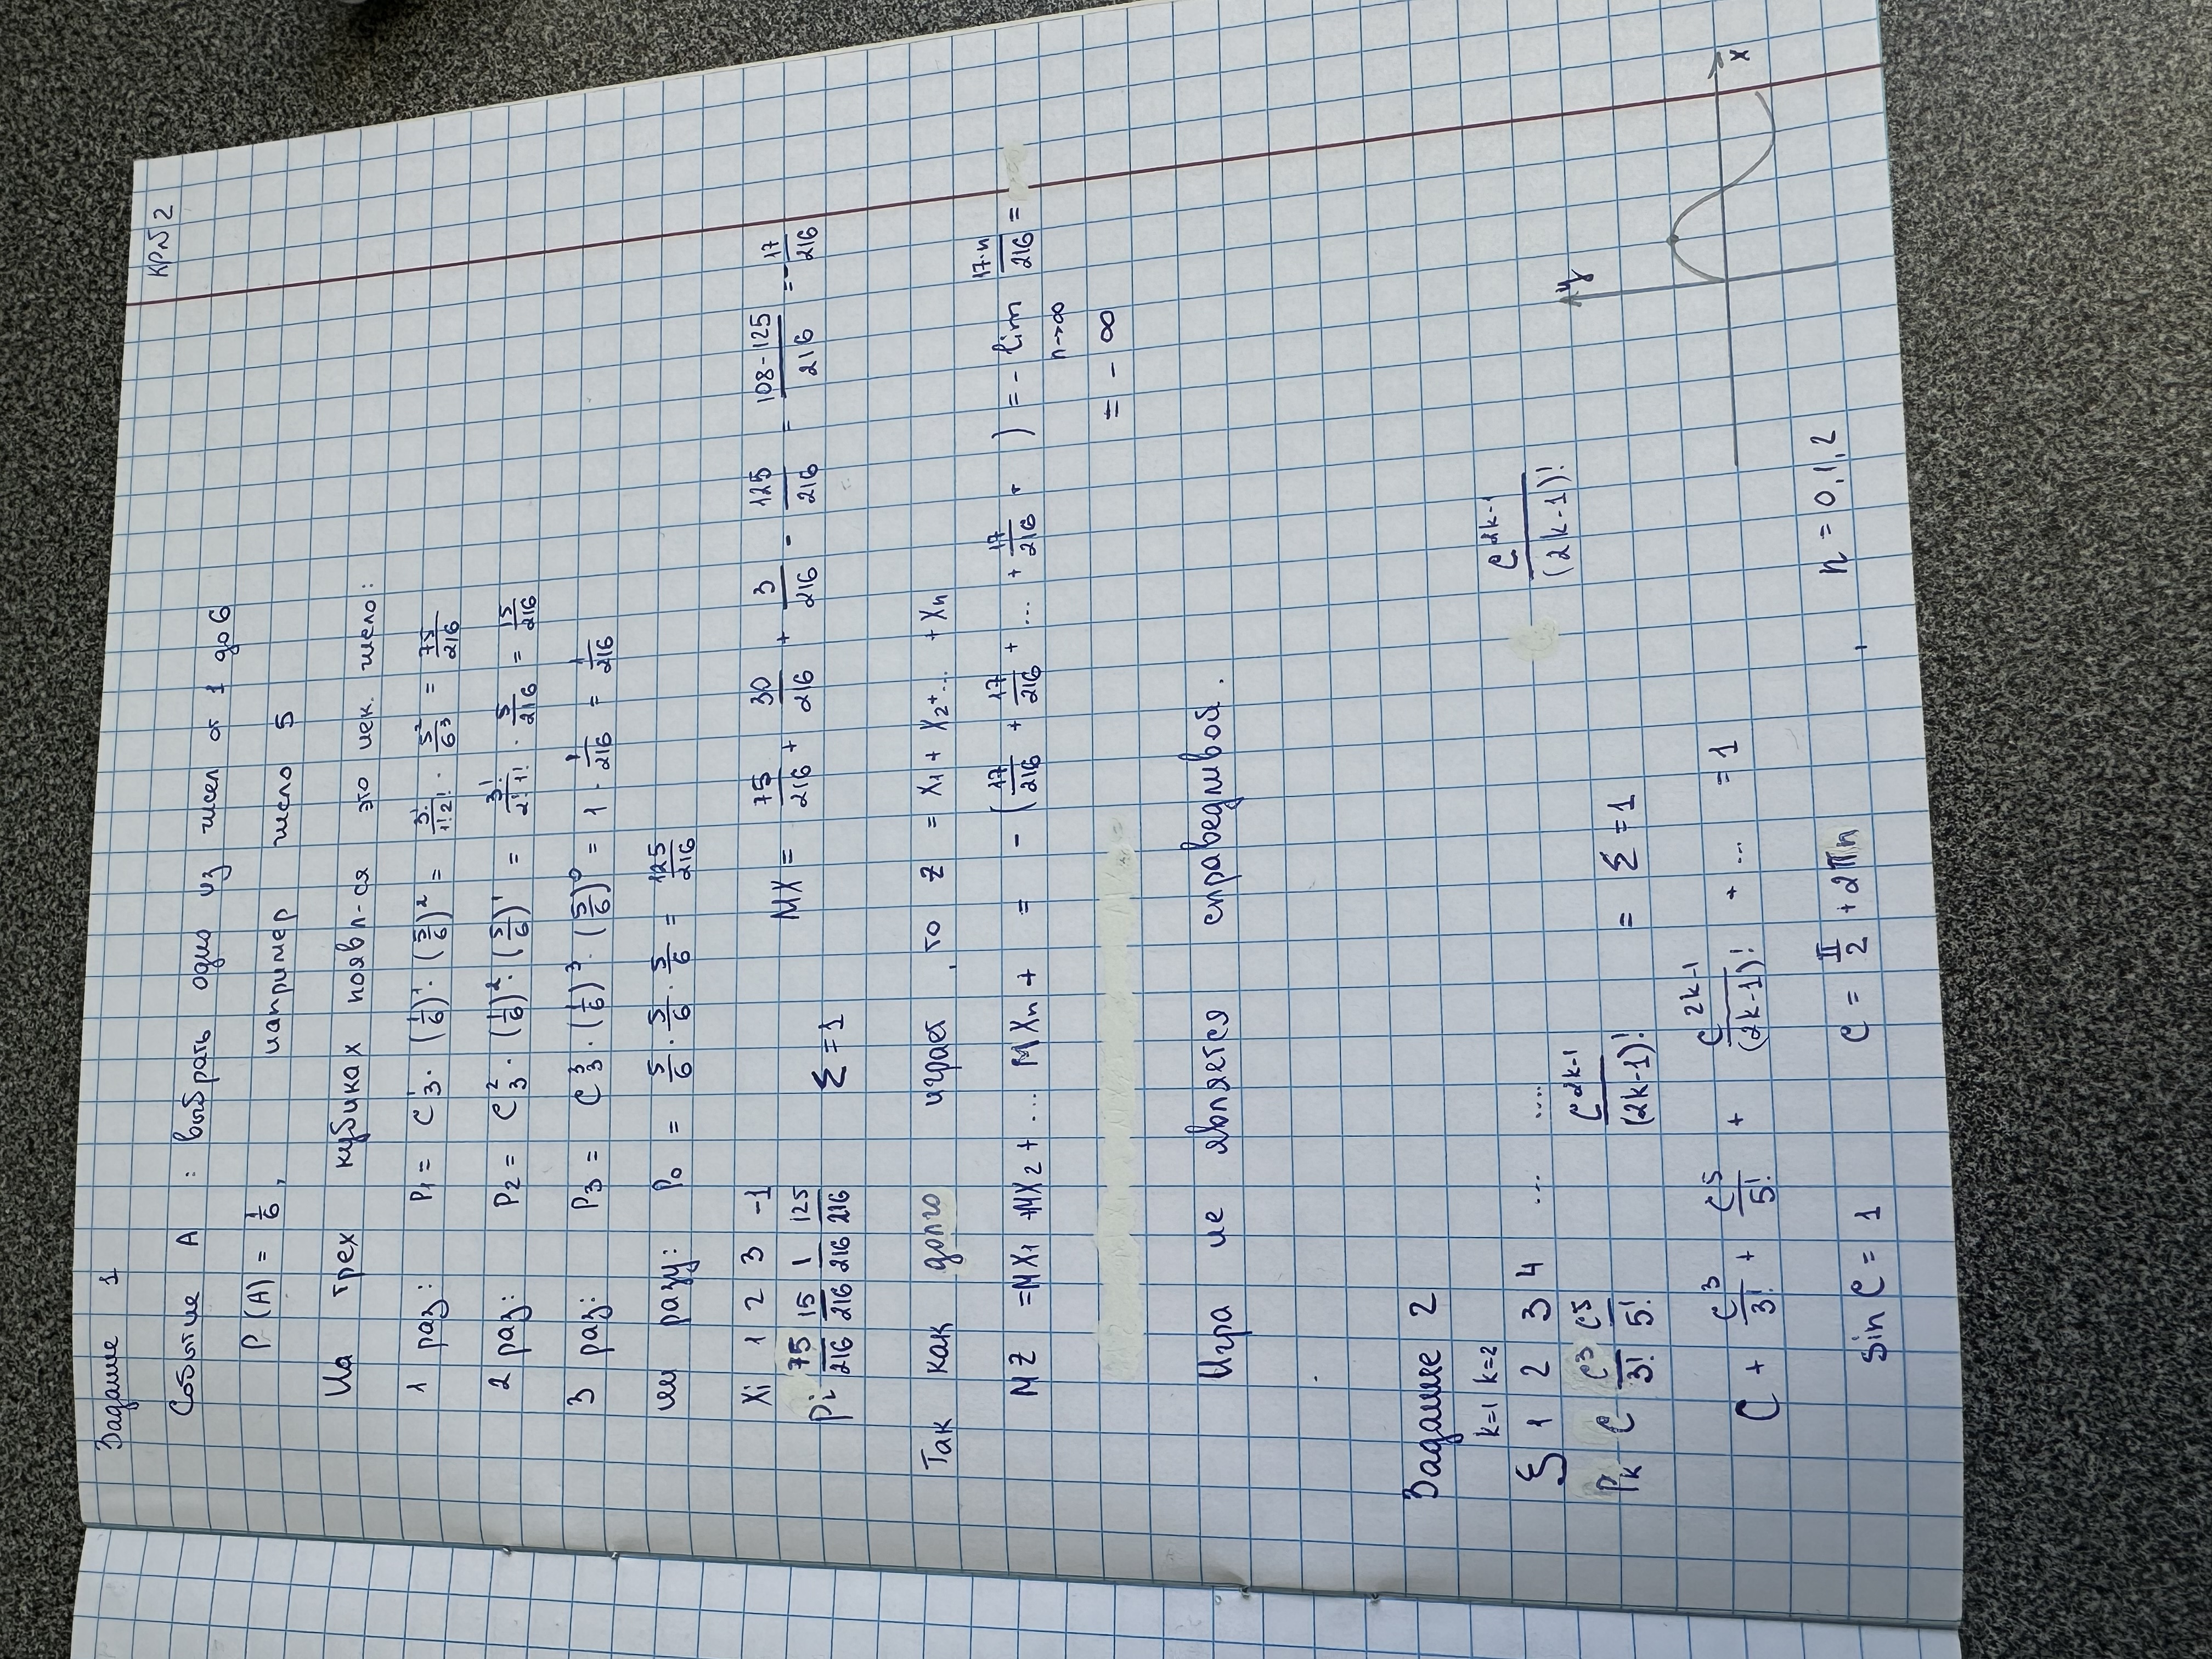 КР№2
Задание 1
Событие А : выбрать одно из чисел от 1 до 6
P(A) = 1/6, например число 5
На трех кубиках появл-ся это нек. число:
1 раз: P₁ = C₃¹ · (1/6)¹ · (5/6)² = 3!/1!2! · 5²/6³ = 75/216
2 раз: P₂ = C₃² · (1/6)² · (5/6)¹ = 3!/2!1! · 5/216 = 15/216
3 раз: P₃ = C₃³ · (1/6)³ · (5/6)⁰ = 1 · 1/216 = 1/216
ни разу: P₀ = 5/6 · 5/6 · 5/6 = 125/216
Xi 1 2 3 -1
Pi 75/216 15/216 1/216 125/216 Σ = 1
MX = 75/216 + 30/216 + 3/216 - 125/216 = (108-125)/216 = -17/216
Так как долго играет, то Z = X₁ + X₂ + ... + Xn
MZ = MX₁ + MX₂ + ... MXn + = - (17/216 + 17/216 + ... + 17/216 + ) = - lim n→∞ 17·n/216 =
= - ∞
Игра не является справедливой.
Задание 2
k=1 k=2
ξ 1 2 3 4 ... ....
Pk C C³/3! C⁵/5! C²ᵏ⁻¹/(2k-1)! = Σ = 1
C²ᵏ⁻¹/(2k-1)!
C + C³/3! + C⁵/5! + C²ᵏ⁻¹/(2k-1)! + ... = 1
y
x
sin C = 1 C = π/2 + 2πn , n = 0,1,2